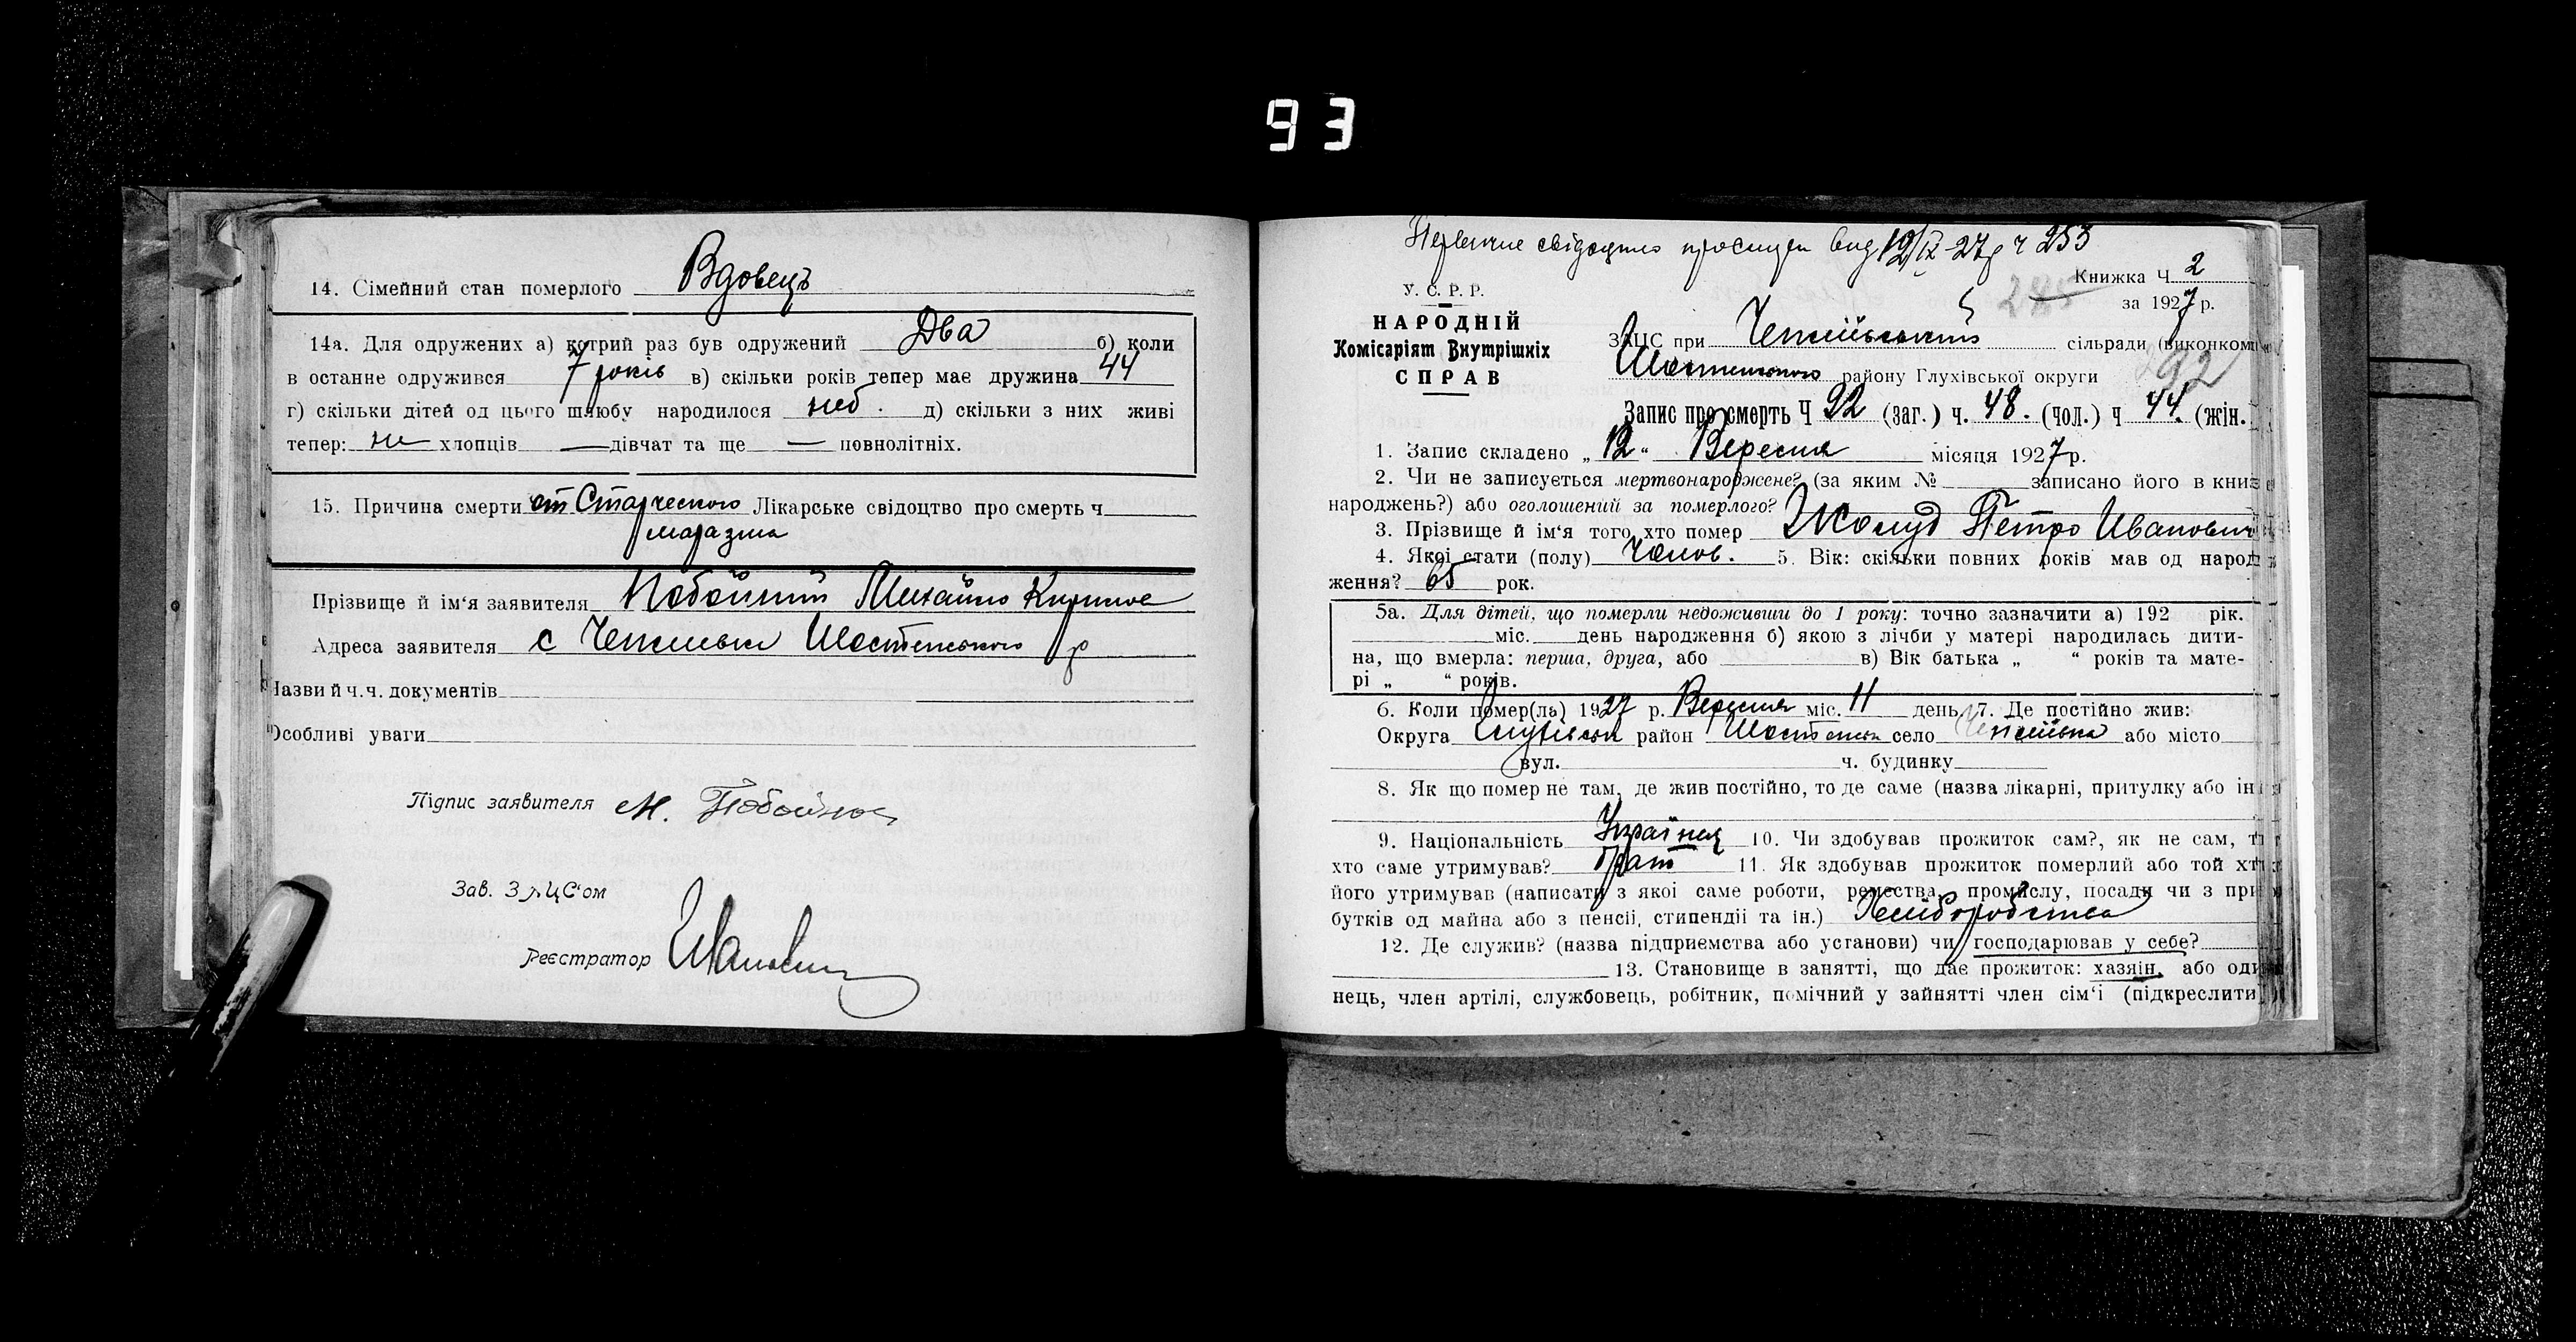 93
14. Сімейний стан померлого Вдовець
14а. Для одружених а) котрий раз був одружений Два б) коли
в останне одружився 7 років в) скільки років тепер має дружина 44
г) скільки дітей од цього шлюбу народилося неб. д) скільки з них живі
тепер: не хлопців — дівчат та ще — повнолітніх.
15. Причина смерти от Старческого Лікарське свідоцтво про смерть ч
маразма
Прізвище й ім‘я заявителя Михайло
Адреса заявителя с Шостенського р
Назви й ч.ч. документів
Особливі уваги
Підпис заявителя М.
Зав. ЗАЦС‘ом
Реєстратор
Первичне свідоцтво від 12/IX-27р ч 253
Книжка Ч. 2
285
У. С. Р. Р.
за 1927 р.
НАРОДНІЙ
Комісаріят Внутрішніх
СПРАВ
ЗАЦС при сільради (виконком
Шостенського району Глухівської округи
92
Запис про смерть Ч 92 (заг.) ч. 48. (чол.) ч 44. (жін.
1. Запис складено „12“ Вересня місяця 1927 р.
2. Чи не записується мертвонароджене? (за яким № записано його в кни
народжень?) або оголошений за померлого?
3. Прізвище й ім‘я того, хто помер Жолуд Петро Иванович
4. Якої стати (полу) Чолов. 5. Вік: скільки повних років мав од народ
ження? 65 рок.
5а. Для дітей, що померли недоживши до 1 року: точно зазначити а) 192 рік.
міс. день народження б) якою з лічби у матері народилась дити-
на, що вмерла: перша, друга, або в) Вік батька „ “ років та мате-
рі „ “ років.
6. Коли помер(ла) 1927 р. Вересня міс. 11 день. 7. Де постійно жив:
Округа Глухівська район Шостенськ село або місто
вул. ч. будинку
8. Як що помер не там, де жив постійно, то де саме (назва лікарні, притулку або ін
9. Національність Українец 10. Чи здобував прожиток сам?, як не сам, т
хто саме утримував? брат 11. Як здобував прожиток померлий або той хт
його утримував (написати з якої саме роботи, ремества, промислу, посади чи з при
бутків од майна або з пенсії, стипендії та ін.) Хліборобства
12. Де служив? (назва підприемства або установи) чи господарював у себе?
13. Становище в занятті, що дає прожиток: хазяїн, або оди
нець, член артілі, службовець, робітник, помічний у зайнятті член сім‘ї (підкреслити